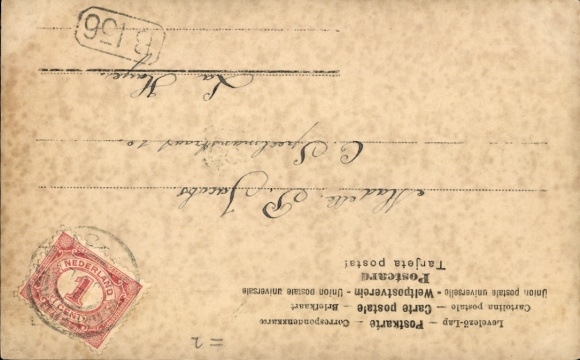 Levelező-Lap — Postkarte — Correspondenzkarte
Cartolina postale — Carte postale — Briefkaart
Union postale universelle - Weltpostverein - Union postale universale
Postcard
Tarjeta postal
Madelle. P. Jacobs
C. Speelmanstraat 10.
La Haye.
B 156
NEDERLAND
1
CENT
= 2